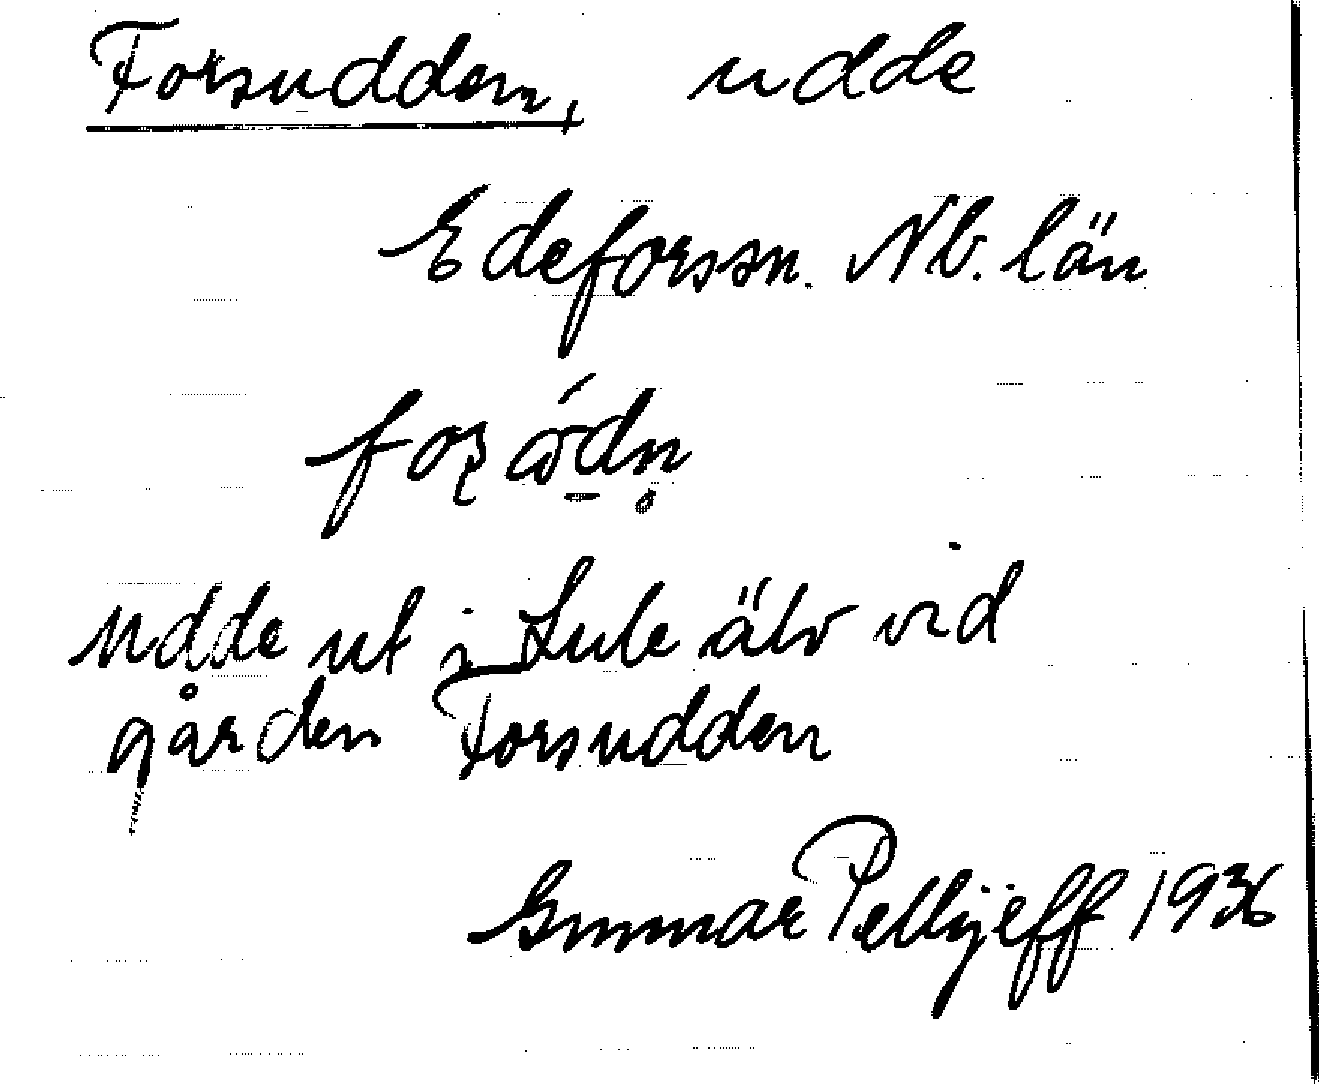 Forsudden, udde
Edeforssn. Nb. län
Udde ut i Lule älv vid
gården Forsudden
Gunnar Pellijeff 1936